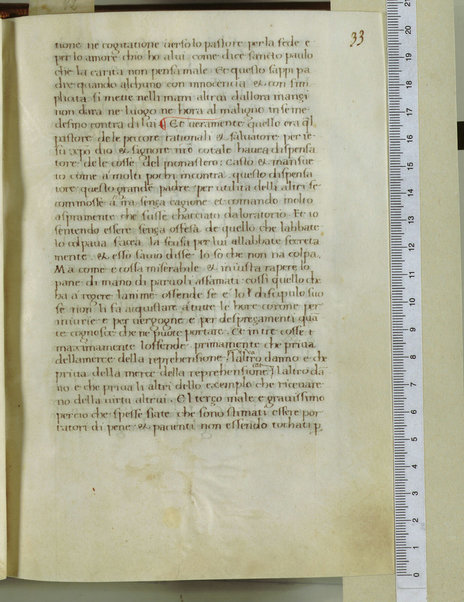 33
tione ne cogitatione uerso lo pastore per la fede e
per lo amore chio ho a lui come dice sancto paulo
che la carita non pensa male Et questo sappi pa
dre quando alchuno con innocentia et con sim
plicita si mette nelli mani altrui dallora mangi
non dara ne luogo ne hora al maligno inseme
desmo contra di lui Et ueramente quello era ql
pastore de le peccore rationali et saluatore per ie
su xpo dio et signore nro cotale hauea dispensa
tore delle cosse del monastero: casto et mansue
to come a molti pochi incontra questo dispensa
tore questo grande padre per utilita delli altri se
commosse a ira senza cagione et comando molto
aspramente che fusse chacciato daloratorio Et io
sentendo essere senza offesa de quello che labbate
lo colpaua facea la scusa per lui allabbate secreta
mente et esso sauio disse Io so che non na colpa
Ma come e cossa miserabile et iniusta rapere lo
pane di mano di paruoli affamati cossi quello che
ha a regere lanime offende se e lo discipulo suo
se non li fa acquistare a tutte le hore corone per
iniurie e per uergogne e per despregamenti qua
te cognosce che ne puote portare Et in tre cosse
maximamente loffende primamente che priua
dellamerce della reprehensione laltro danno e che
priua della merce della reprehensione laltro da
no e che priua li altri dello exemplo che riceuere
no della uirtu altrui El terzo male e grauissimo
percio che spesse fiate che sono stimati essere por
tatori di pene et pacienti non essendo tochati p
20
19
18
17
16
15
14
13
12
11
10
9
8
7
6
5
4
3
2
1
0